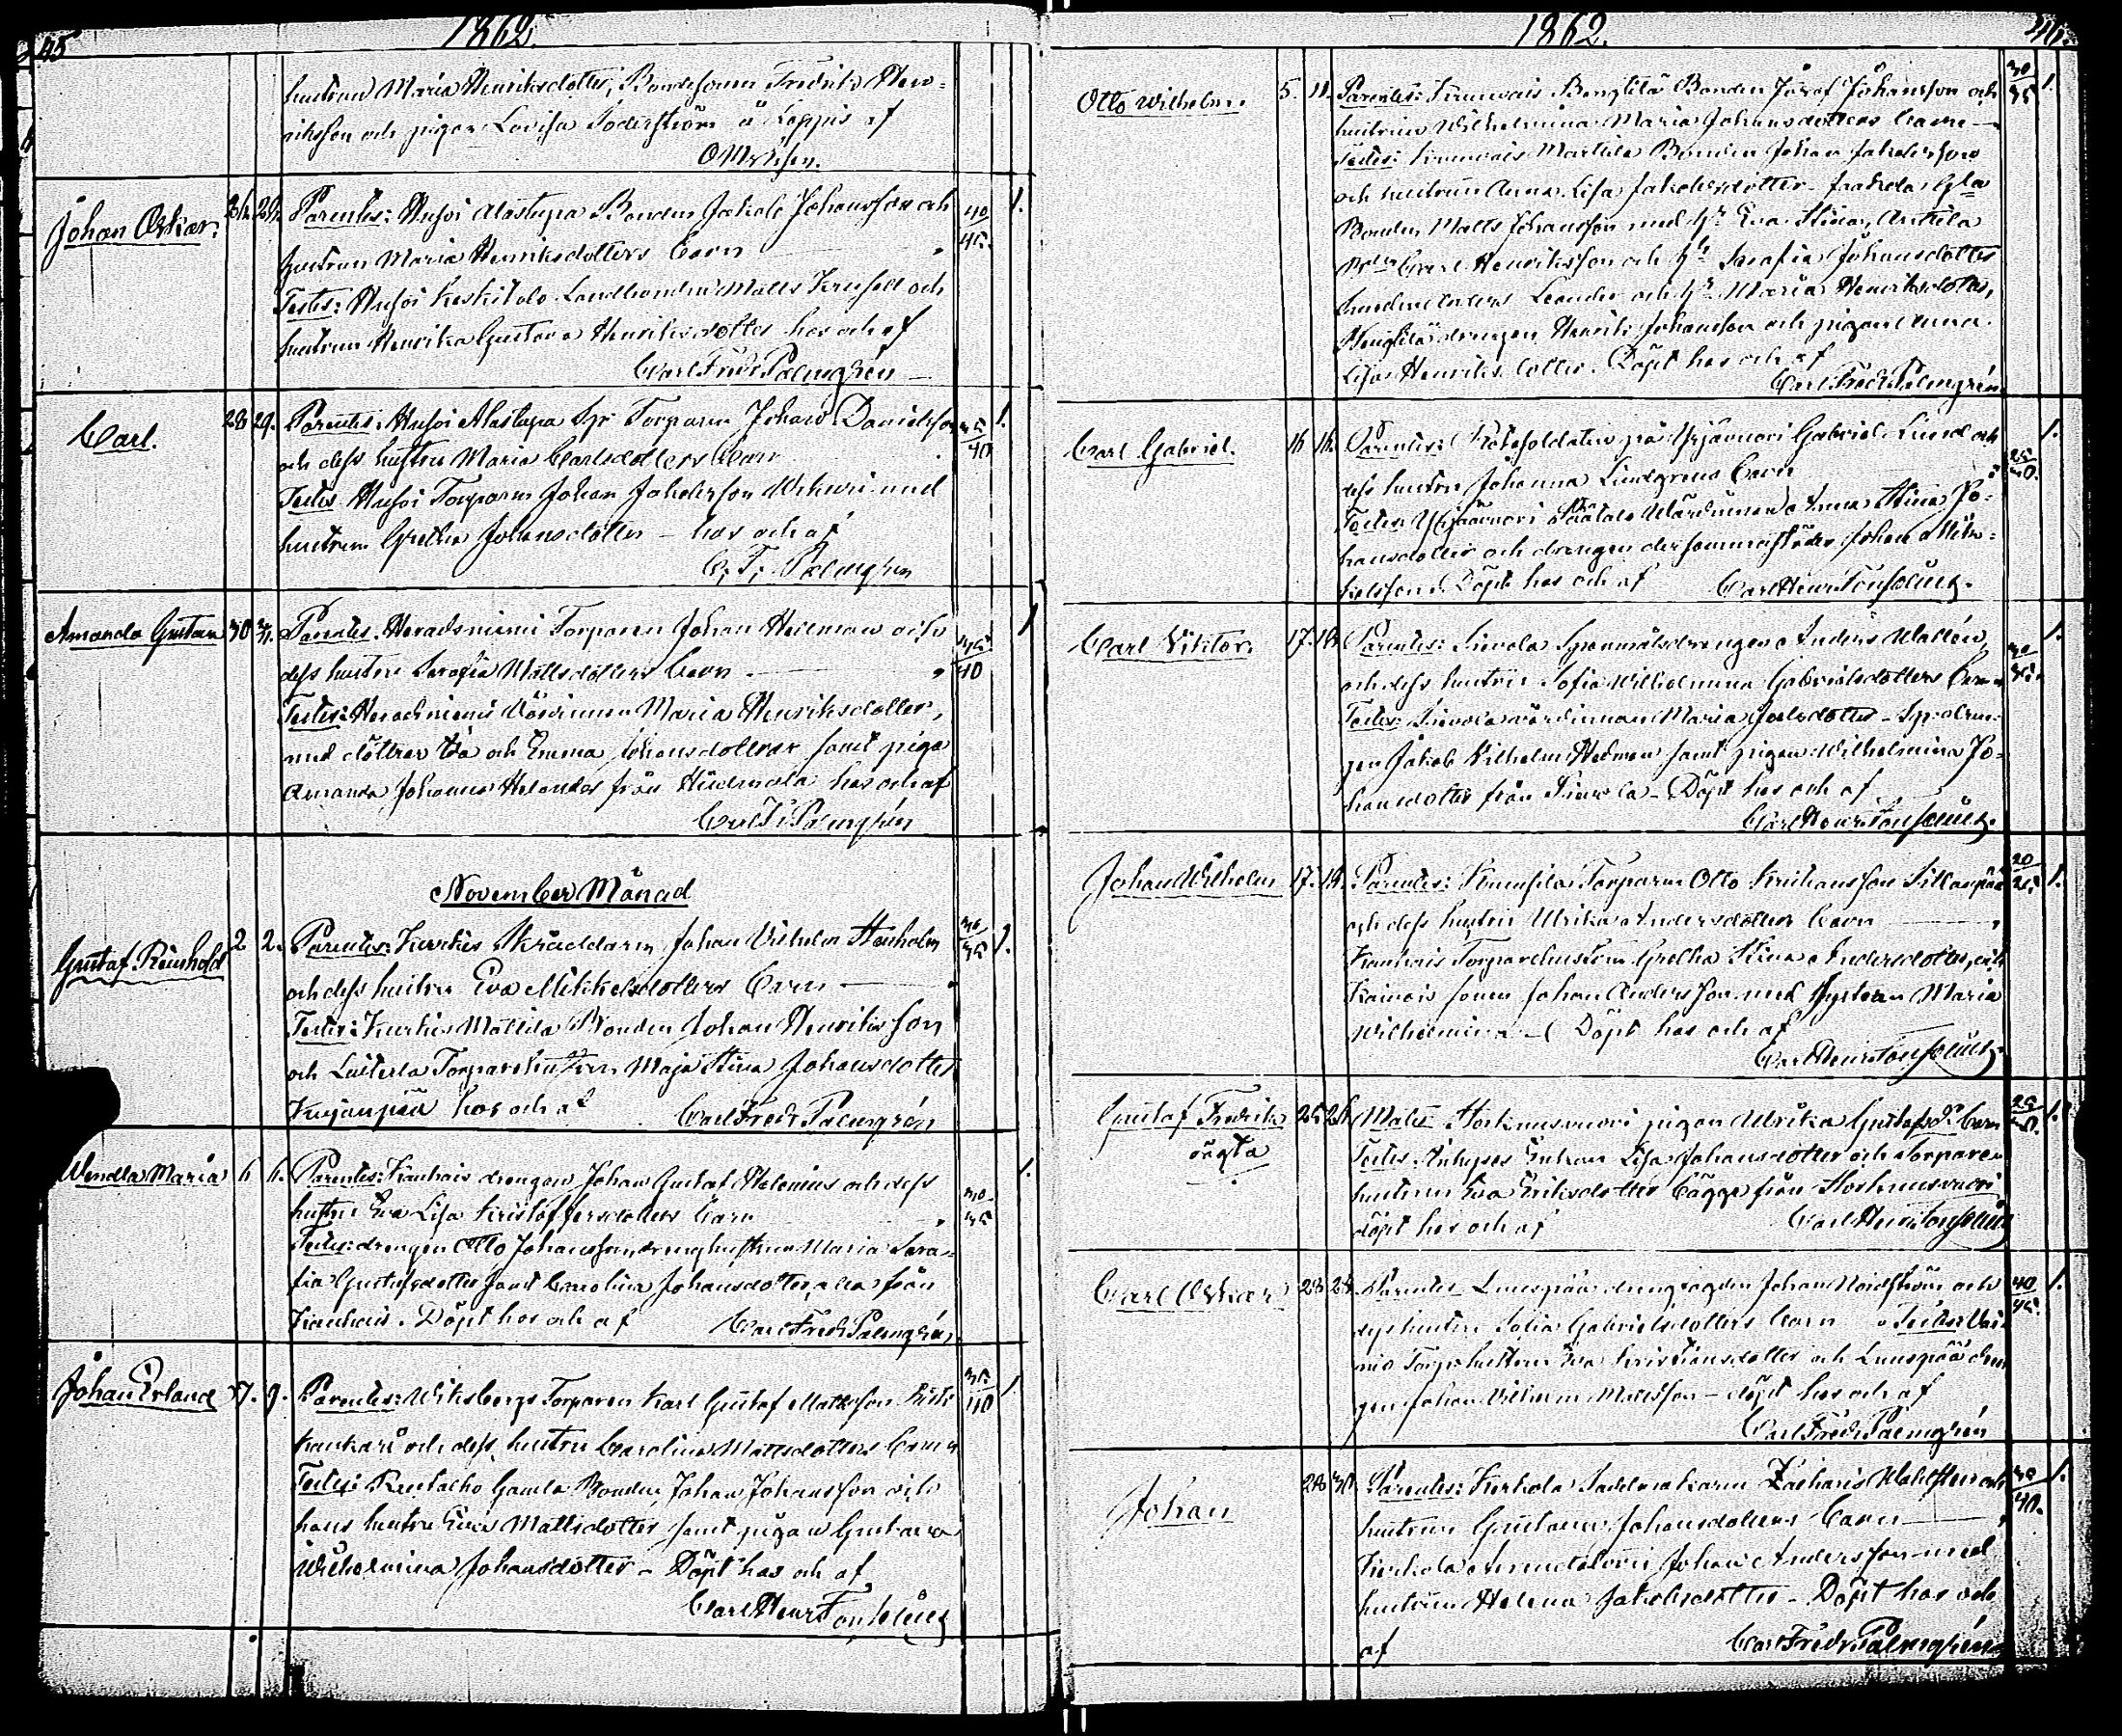 45
1862.
hustrun Maria Henriksdotter, Bondesonen Fredrik Hen-
riksson och pigan Lovisa Söderström å Loppis af
Johan Oskar. 26. 29. Parentes: Husoi Alastupa Bonden Jakob Johansson och 40/45. 1.
hustrun Maria Henriksdotters barn
Testes: Husoi Keskitalo Landbonden Matts och
hustrun Henrika Gustava Henriksdotter hos och af
Carl Fredr Palmgrén
Carl. 28 29. Parentes: Husoi Alastupa Torparen Johan Danielsson 35/40 1.
och dess hustru Maria Carlsdotters barn
Testes Husoi Torparen Johan Jakobsson med
hustrun Gretha Johansdotter - hos och af
C. F. Palmgrén
Amanda Gustava 30 31. Parentes. Heradsniemi Torparen Johan Hedman och 35/40 1
dess hustru Serafia Mattsdotters barn
Testes: Heradsniemi Värdinnan Maria Henriksdotter,
med döttrar Eva och Emma Johansdottrar samt piga
Amanda Johanna Helander från hos och af
Carl F. Palmgrén
November Månad
Gustaf Reinhold 2 2. Parentes: Kurkis Skräddaren Johan Vilhelm Stenholm 30/35 1.
och dess hustru Eva Mikkelsdotters barn
Testes: Kurkis Mattila Bonden Johan Henriksson
och Torparehustrun Maja Stina Johansdotter
Kujanpää hos och af Carl Fredr Palmgrén
Wendla Maria 6 6. Parentes: Kauhais drengen Johan Gustaf Helenius och dess 30/35 1.
hustru Eva Lisa Kristoffersdotters barn
Testes: drengen Otto Johansson, drenghustrun Maria Sera-
fia Gustafsdotter samt Carolina Johansdotter, alla från
Kauhais. Döpt hos och af Carl Fredr Palmgrén
Johan Erland 7. 9. Parentes: Wiksbergs Torparen Karl Gustaf Mattsson 35/40 1.
kankare och dess hustru Carolina Mattsdotters barn
Testes: Rentalho Gamla Bonden Johan Johansson och
hans hustru Eva Mattsdotter samt pigan Gustava
Wilhelmina Johansdotter - Döpt hos och af
Carl Henr
1862.
46.
Otto Wilhelm. 5. 11. Parentes: Bengtilä Bonden Josef Johansson och 30/35 1.
hustrun Wilhelmina Maria Johansdotters barn
Testes: Marttila Bonden Johan Jakobsson
och hustrun Anna Lisa Jakobsdotter - Jaakola Gla
Bonden Matts Johansson med hu Eva Stina, Anttila
Henriksson och hu Serafia Johansdotter
Leander och hu Maria Henriksdotter,
drengen Henrik Johansson och pigan Anna
Lisa Henriksdotter. Döpt hos och af
Carl Fredr Palmgrén
Carl Gabriel. 16 16. Parentes: Rotesoldaten på Yxjänvori Gabriel Lund och 25/30. 1.
dess hustru Johanna Lindgrens barn
Testes: Wärdinnan Anna Stina Jo-
hansdotter och drengen dersammastädes Johan Mik-
kelsson. Döpt hos och af Carl Henr
Carl Viktor. 17. 18. Parentes: Sievola Anders Wallén 30/35. 1.
och dess hustru Sofia Wilhelmina Gabrielsdotters barn
Testes: Sievola värdinnan Maria Joelsdotter
gen Jakob Vilhelm Hedman samt pigan Wilhelmina Jo-
hansdotter från Sievola - Döpt hos och af
Carl Henr
Johan Wilhelm 17. 19. Parentes: Torparen Otto Krihansson Sillanpää 20/25 1.
och dess hustru Ulrika Andersdotters barn
Torparehustrun Gretha Stina Andersdotter, och
sonen Johan Andersson med systern Maria
Wilhelmina - Döpt hos och af
Carl Henr
Gustaf Fredrik 25 26 Mater pigan Ulrika Gustafsd. barn 25/30. 1.
oägta
Testes: Enkan Lisa Johansdotter och Torpare
hustrun Eva Eriksdotter bägge från
döpt hos och af Carl Henr
Carl Oskar 28 28. Parentes Luuspää drengogden Johan Nordström och 40/45. 1.
dess hustru Sofia Gabrielsdotters barn Testes: Vai-
nio Torp.hustrun Eva Kristiansdotter och Luuspää dren-
gen Johan Vilhelm Mattsson - döpt hos och af
Carl Fredr Palmgrén
Johan 28 30. Parentes: Kerkola Sadelmakaren Zacharis Wahlsten och 40. 1.
hustrun Gustava Johansdotters barn
Kerkola Johan Andersson med
hustrun Helena Jakobsdotter - Döpt hos och
af Carl Fredr Palmgrén